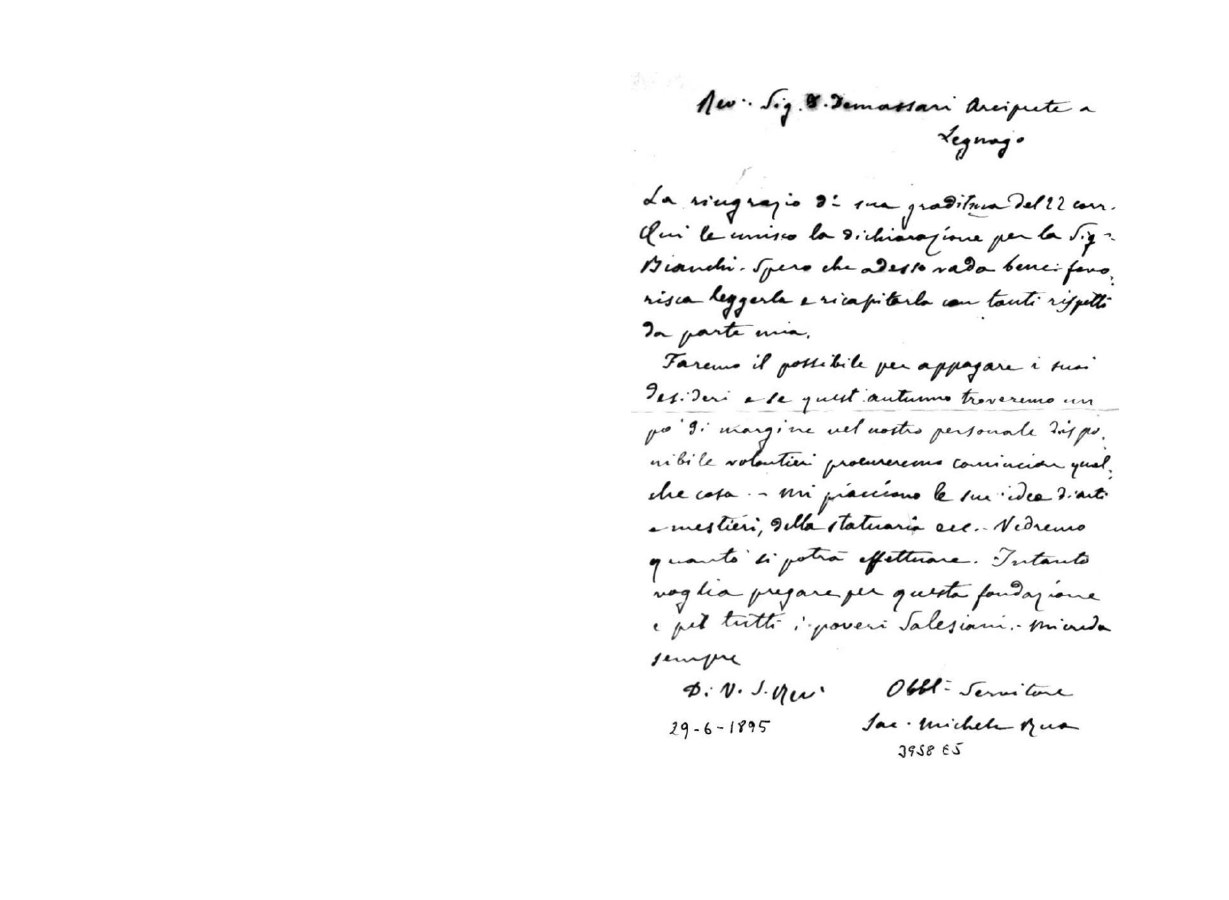 Rev. Sig. D. Demassari Arciprete a
Legnago
La ringrazio di sua graditma del 22 corr.
Qui le unisco la dichiarazione per la Sig.ra
Bianchi. Spero che adesso vada bene: favo,
risca leggerla e ricapitarla con tanti rispetti
da parte mia.
Faremo il possibile per appagare i suoi
desideri e se quest'autunno troveremo un
po' di margine nel nostro personale dispo,
nibile volontieri procureremo cominciar qual,
che cosa. - Mi piacciono le sue idee d'arti
e mestieri, della statuaria ecc. - Vedremo
quanto si potrà effettuare. Intanto
voglia pregare per questa fondazione
e per tutti i poveri Salesiani. - Mi creda
sempre
D. V. S. Rev.
Obbl. Servitore
29-6-1895
Sac. Michele Rua
3958 E5